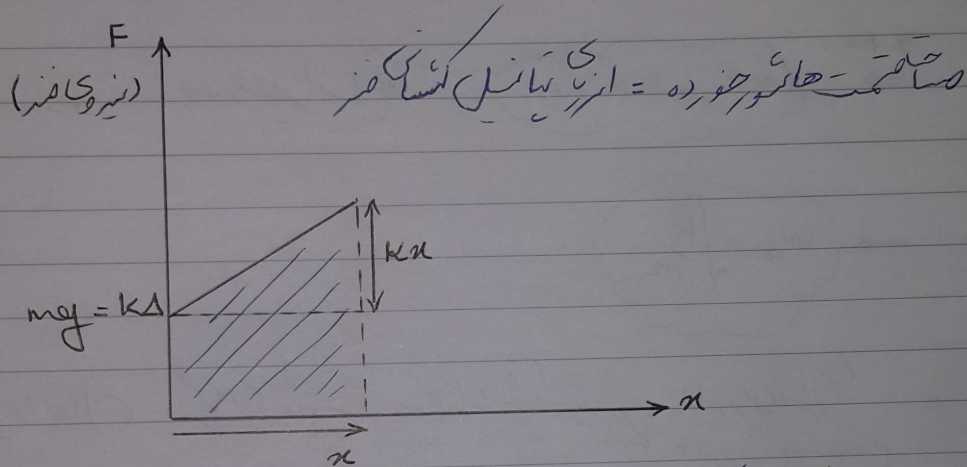 F
(نیروی فنر)
مساحت قسمت هاشور خورده = انرژی پتانسیل کشسانی فنر
kx
mg = kΔ
x
x